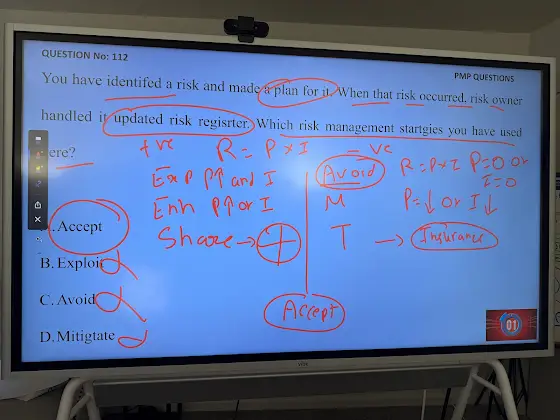 QUESTION No: 112
PMP QUESTIONS
You have identifed a risk and made a plan for it. When that risk occurred, risk owner
handled it updated risk regisrter. Which risk management startgies you have used
ere?
+ve R = P × I - ve
Exp P↑ and I
Enh P↑ or I
Share → +
Avoid R = P × I P = 0 or
I = 0
M P = ↓ or I ↓
T → Insurance
Accept
Accept
B. Exploit
C. Avoid
D. Mitigtate
01